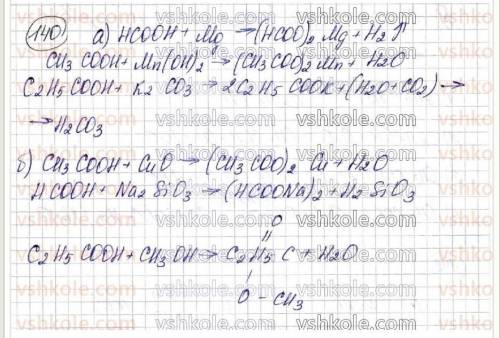 140 а) HCOOH + Mg → (HCOO)₂ Mg + H₂↑
CH₃ COOH + Mn(OH)₂ → (CH₃COO)₂ Mn + H₂O
C₂H₅ COOH + K₂ CO₃ → 2C₂H₅ COOK + (H₂O + CO₂) →
→ H₂CO₃
б) CH₃ COOH + CuO → (CH₃ COO)₂ Cu + H₂O
H COOH + Na₂ SiO₃ → (HCOONa)₂ + H₂ SiO₃
O
||
C₂ H₅ COOH + CH₃ OH → C₂H₅ C + H₂O
|
O – CH₃
vshkole.com